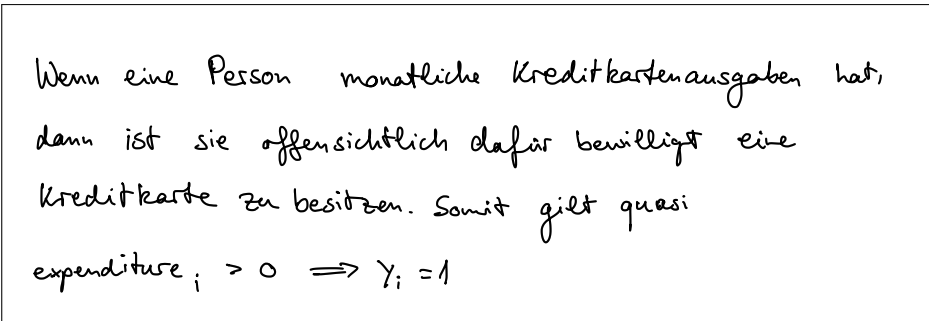 Wenn eine Person monatliche Kreditkartenausgaben hat,
dann ist sie offensichtlich dafür bewilligt eine
Kreditkarte zu besitzen. Somit gilt quasi
expenditure_i > 0 ⟹ Y_i = 1